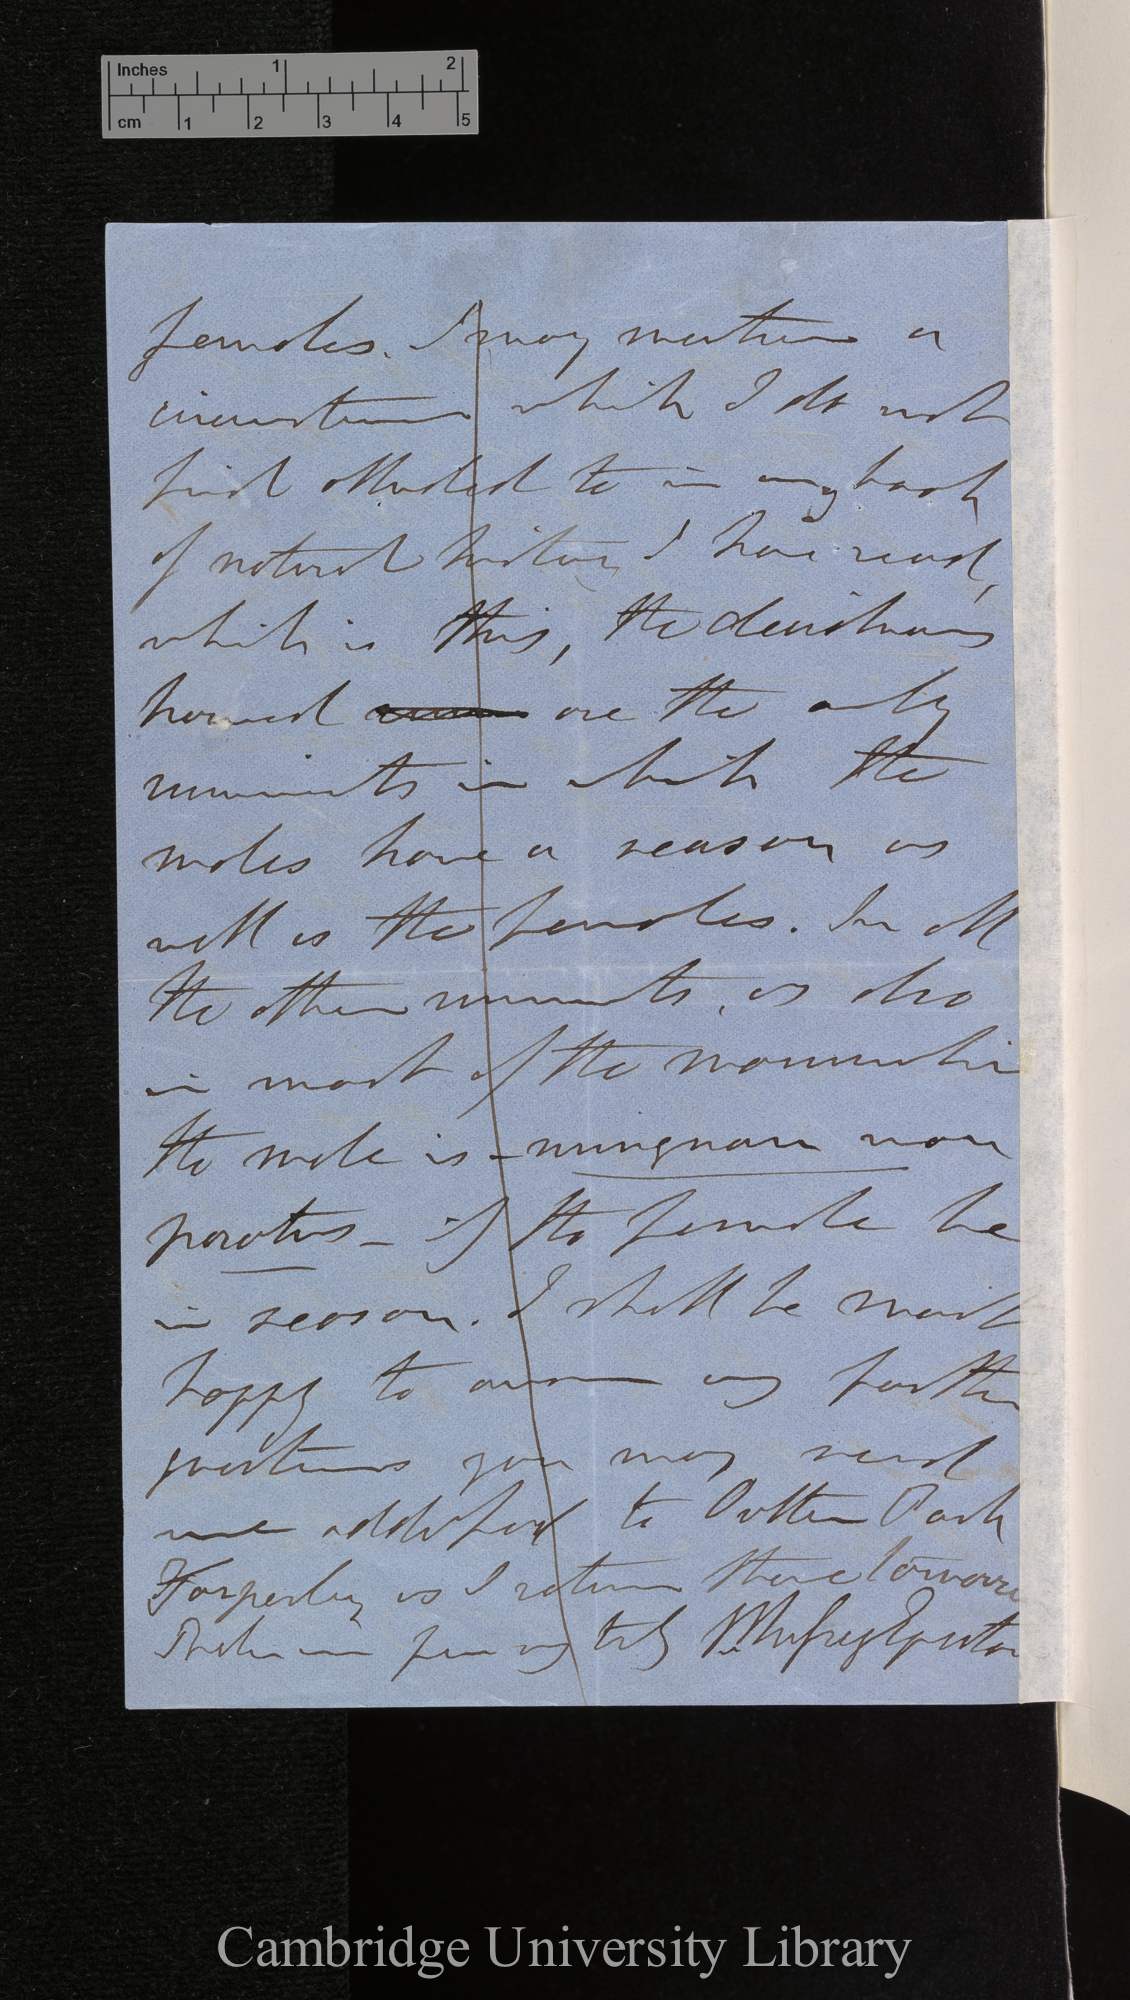 Inches 1 2
cm 1 2 3 4 5
females. I may mention a
circumstance which I do not
find alluded to in any book
of natural history I have read,
which is this, the deciduous
horned are the only
ruminants in which the
males have a season as
well as the females. In all
the other ruminants, as also
in most of the mammalia
the male is – nunquam non
paratus – if the female be
in season. I shall be most
happy to answer any further
questions you may send
me addressed to Oulton Park
Tarporley as I return there tomorrow
Believe me yrs very truly P. de M. Grey Egerton
Cambridge University Library